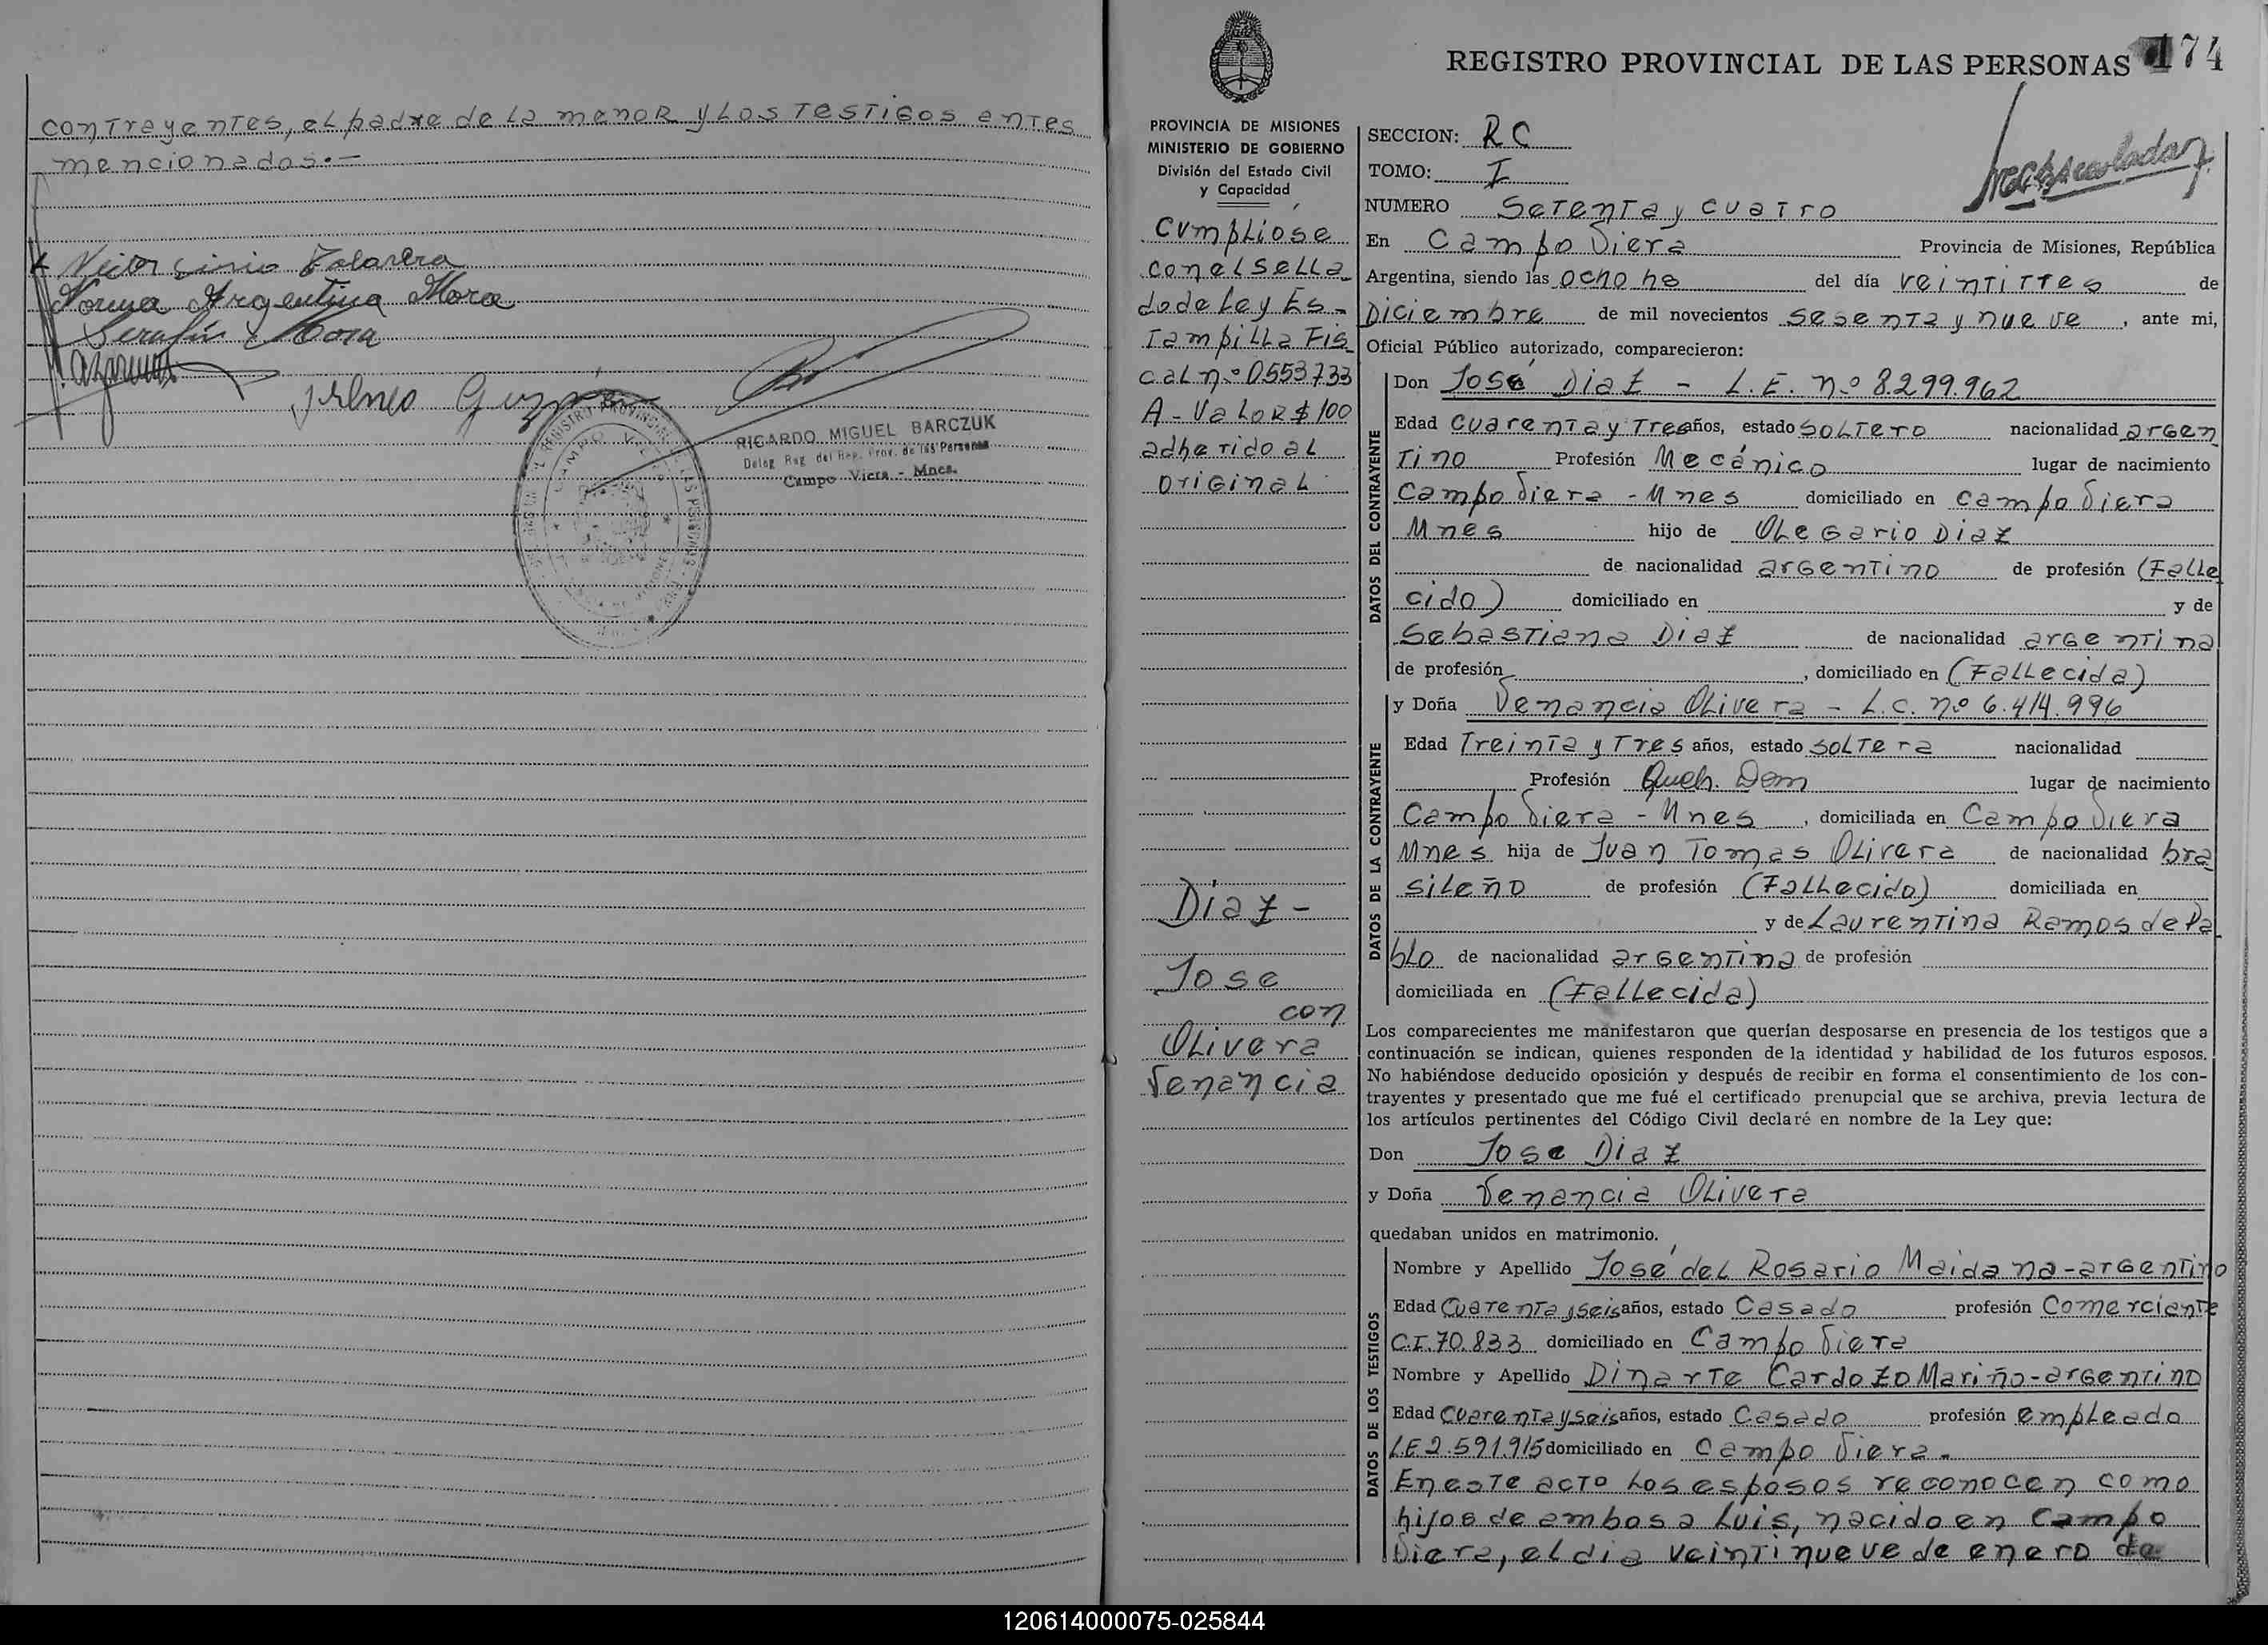 contrayentes, el padre de la menor y los testigos antes
mencionados.-
Norma Argentina Mora
Serafín Mora
Guzmán
RICARDO MIGUEL BARCZUK
Deleg. Reg. del Reg. Prov. de las Personas
Campo Viera - Mnes.
174
REGISTRO PROVINCIAL DE LAS PERSONAS
PROVINCIA DE MISIONES
MINISTERIO DE GOBIERNO
División del Estado Civil
y Capacidad
Cumpliose
con el sella
do de ley Es-
tampilla Fis
cal nº 0553733
A - Valor $ 100
adherido al
original
Diaz -
Jose
con
Olivera
Venancia
SECCION: RC
TOMO: I
NUMERO Setenta y cuatro
En Campo Viera Provincia de Misiones, República
Argentina, siendo las ocho hs del día veintitres de
Diciembre de mil novecientos sesenta y nueve, ante mi,
Oficial Público autorizado, comparecieron:
DATOS DEL CONTRAYENTE
Don José Diaz - L.E. nº 8.299.962
Edad cuarenta y tres años, estado soltero nacionalidad argen
tino Profesión Mecánico lugar de nacimiento
Campo Viera - Mnes domiciliado en Campo Viera
Mnes hijo de Olegario Diaz
de nacionalidad argentino de profesión (Falle
cido) domiciliado en y de
Sebastiana Diaz de nacionalidad argentina
de profesión , domiciliado en (Fallecida)
DATOS DE LA CONTRAYENTE
y Doña Venancia Olivera - L.C. nº 6.414.996
Edad Treinta y Tres años, estado soltera nacionalidad
Profesión Queh. Dom lugar de nacimiento
Campo Viera - Mnes, domiciliada en Campo Viera
Mnes hija de Juan Tomas Olivera de nacionalidad bra
sileño de profesión (Fallecido) domiciliada en
y de Laurentina Ramos de Pa
blo de nacionalidad argentina de profesión
domiciliada en (Fallecida)
Los comparecientes me manifestaron que querían desposarse en presencia de los testigos que a
continuación se indican, quienes responden de la identidad y habilidad de los futuros esposos.
No habiéndose deducido oposición y después de recibir en forma el consentimiento de los con-
trayentes y presentado que me fué el certificado prenupcial que se archiva, previa lectura de
los artículos pertinentes del Código Civil declaré en nombre de la Ley que:
Don Jose Diaz
y Doña Venancia Olivera
quedaban unidos en matrimonio.
DATOS DE LOS TESTIGOS
Nombre y Apellido José del Rosario Maidana - argentino
Edad Cuarenta y seis años, estado Casado profesión Comerciante
C.I. 70.833 domiciliado en Campo Viera
Nombre y Apellido Dinarte Cardozo Mariño - argentino
Edad Cuarenta y seis años, estado Casado profesión empleado
L.E 2.591.915 domiciliado en Campo Viera.
En este acto los esposos reconocen como
hijos de ambos a Luis, nacido en Campo
Viera, el dia veintinueve de enero de
120614000075-025844